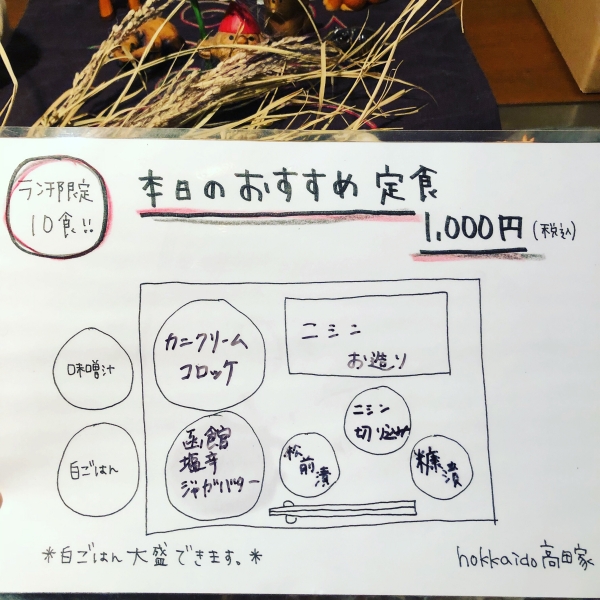 ランチ限定
10食!!
本日のおすすめ定食
1,000円(税込)
味噌汁
カニクリーム
コロッケ
ニシン
お造り
白ごはん
函館
塩辛
ジャガバター
松
前
漬
ニシン
切り込み
糠
漬
*白ごはん大盛できます。*
hokkaido高田家